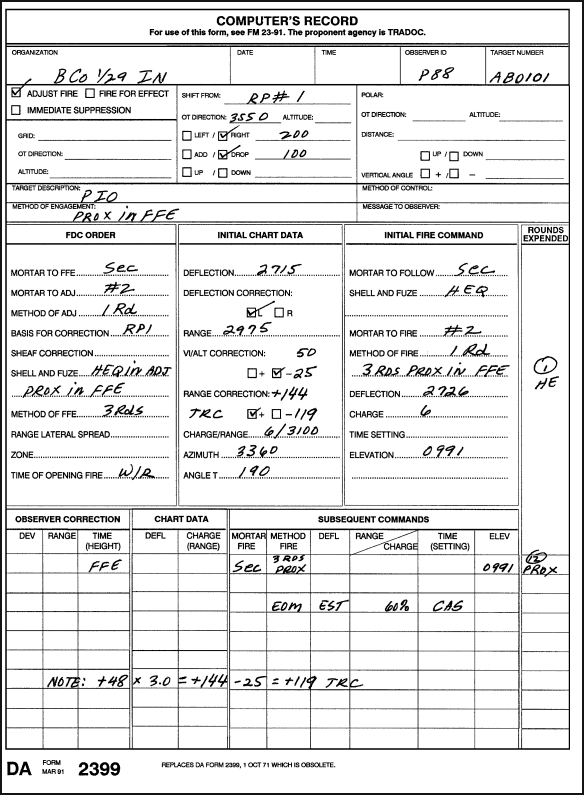 COMPUTER'S RECORD
For use of this form, see FM 23-91. The proponent agency is TRADOC.
ORGANIZATION DATE TIME OBSERVER ID TARGET NUMBER
B Co 1/29 IN P88 AB0101
ADJUST FIRE FIRE FOR EFFECT
IMMEDIATE SUPPRESSION
GRID:
OT DIRECTION:
ALTITUDE:
SHIFT FROM: RP# 1
OT DIRECTION: 3550 ALTITUDE:
LEFT / RIGHT 200
ADD / DROP 100
UP / DOWN
POLAR:
OT DIRECTION: ALTITUDE:
DISTANCE:
UP / DOWN
VERTICAL ANGLE + / -
TARGET DESCRIPTION: PIO
METHOD OF CONTROL:
METHOD OF ENGAGEMENT: PROX in FFE
MESSAGE TO OBSERVER:
FDC ORDER
MORTAR TO FFE Sec
MORTAR TO ADJ #2
METHOD OF ADJ 1 Rd
BASIS FOR CORRECTION RP1
SHEAF CORRECTION
SHELL AND FUZE HEQ IN ADJ
PROX in FFE
METHOD OF FFE 3 Rds
RANGE LATERAL SPREAD
ZONE
TIME OF OPENING FIRE W/R
INITIAL CHART DATA
DEFLECTION 2715
DEFLECTION CORRECTION:
L R
RANGE 2975
VI/ALT CORRECTION: 50
+ -25
RANGE CORRECTION: +144
TRC + -119
CHARGE/RANGE 6/3100
AZIMUTH 3360
ANGLE T 190
INITIAL FIRE COMMAND
MORTAR TO FOLLOW Sec
SHELL AND FUZE HEQ
MORTAR TO FIRE #2
METHOD OF FIRE 1 Rd
3 RDS PROX IN FFE
DEFLECTION 2726
CHARGE 6
TIME SETTING
ELEVATION 0991
ROUNDS EXPENDED
1
HE
OBSERVER CORRECTION CHART DATA SUBSEQUENT COMMANDS
DEV RANGE TIME (HEIGHT) DEFL CHARGE (RANGE) MORTAR FIRE METHOD FIRE DEFL RANGE CHARGE TIME (SETTING) ELEV
FFE Sec 3 RDS PROX 0991 12 PROX
EOM EST 60% CAS
NOTE: +48 x 3.0 = +144 -25 = +119 TRC
DA FORM MAR 91 2399 REPLACES DA FORM 2399, 1 OCT 71 WHICH IS OBSOLETE.